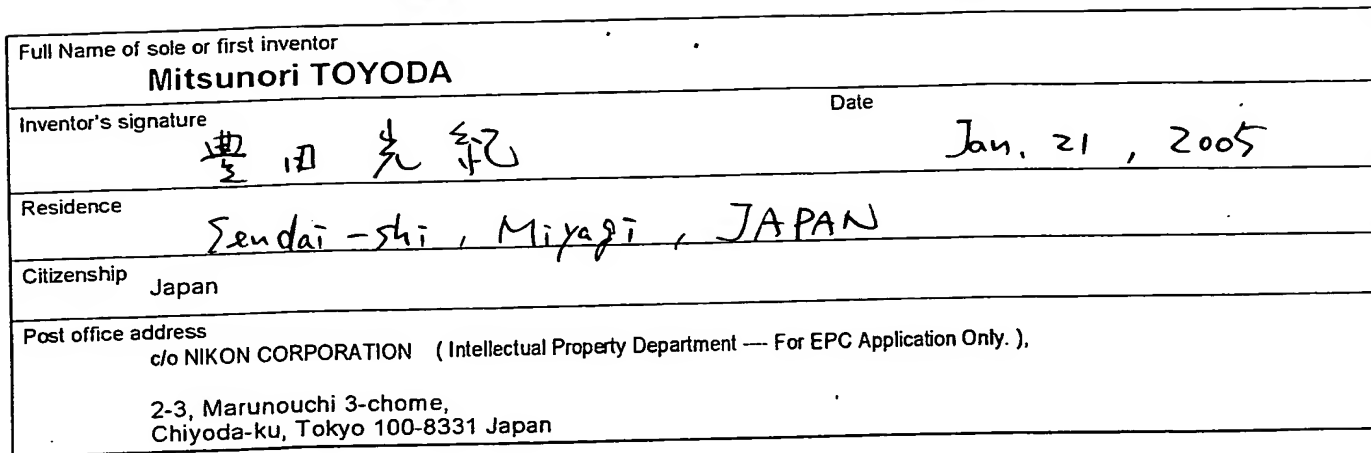 Full Name of sole or first inventor
Mitsunori TOYODA
Inventor's signature
豊田 光紀
Date
Jan. 21, 2005
Residence
Sendai-shi, Miyagi, JAPAN
Citizenship
Japan
Post office address
c/o NIKON CORPORATION ( Intellectual Property Department --- For EPC Application Only. ),
2-3, Marunouchi 3-chome,
Chiyoda-ku, Tokyo 100-8331 Japan